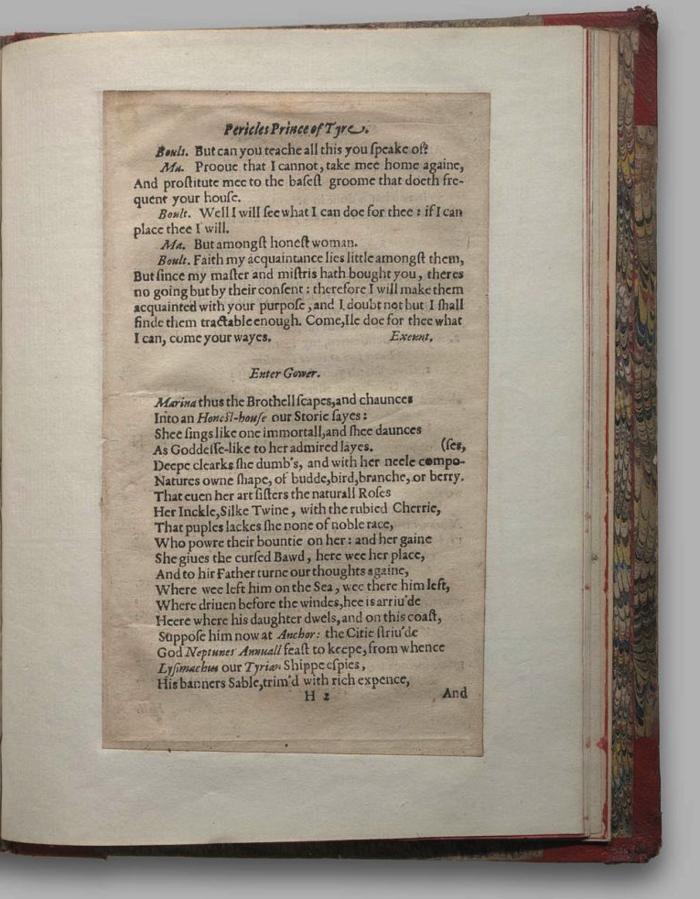 Pericles Prince of Tyre.
Boult. But can you teache all this you ſpeake of?
Ma. Prooue that I cannot, take mee home againe,
And proſtitute mee to the baſeſt groome that doeth fre-
quent your houſe.
Boult. Well I will ſee what I can doe for thee : if I can
place thee I will.
Ma. But amongſt honeſt woman.
Boult. Faith my acquaintance lies little amongſt them,
But ſince my maſter and miſtris hath bought you, theres
no going but by their conſent : therefore I will make them
acquainted with your purpoſe, and I doubt not but I ſhall
finde them tractable enough. Come, Ile doe for thee what
I can, come your wayes. Exeunt.
Enter Gower.
Marina thus the Brothell ſcapes, and chaunces
Into an Honeſt-houſe our Storie ſayes :
Shee ſings like one immortall, and ſhee daunces
As Goddeſſe-like to her admired layes. (ſes,
Deepe clearks ſhe dumb's, and with her neele compo-
Natures owne ſhape, of budde, bird, branche, or berry.
That euen her art ſiſters the naturall Roſes
Her Inckle, Silke Twine, with the rubied Cherrie,
That puples lackes ſhe none of noble race,
Who powre their bountie on her : and her gaine
She giues the curſed Bawd, here wee her place,
And to hir Father turne our thoughts againe,
Where wee left him on the Sea, wee there him left,
Where driuen before the windes, hee is arriu'de
Heere where his daughter dwels, and on this coaſt,
Suppoſe him now at Anchor : the Citie ſtriu'de
God Neptunes Annuall feaſt to keepe, from whence
Lyſimachus our Tyrian Shippe eſpies,
His banners Sable, trim'd with rich expence,
H 2 And